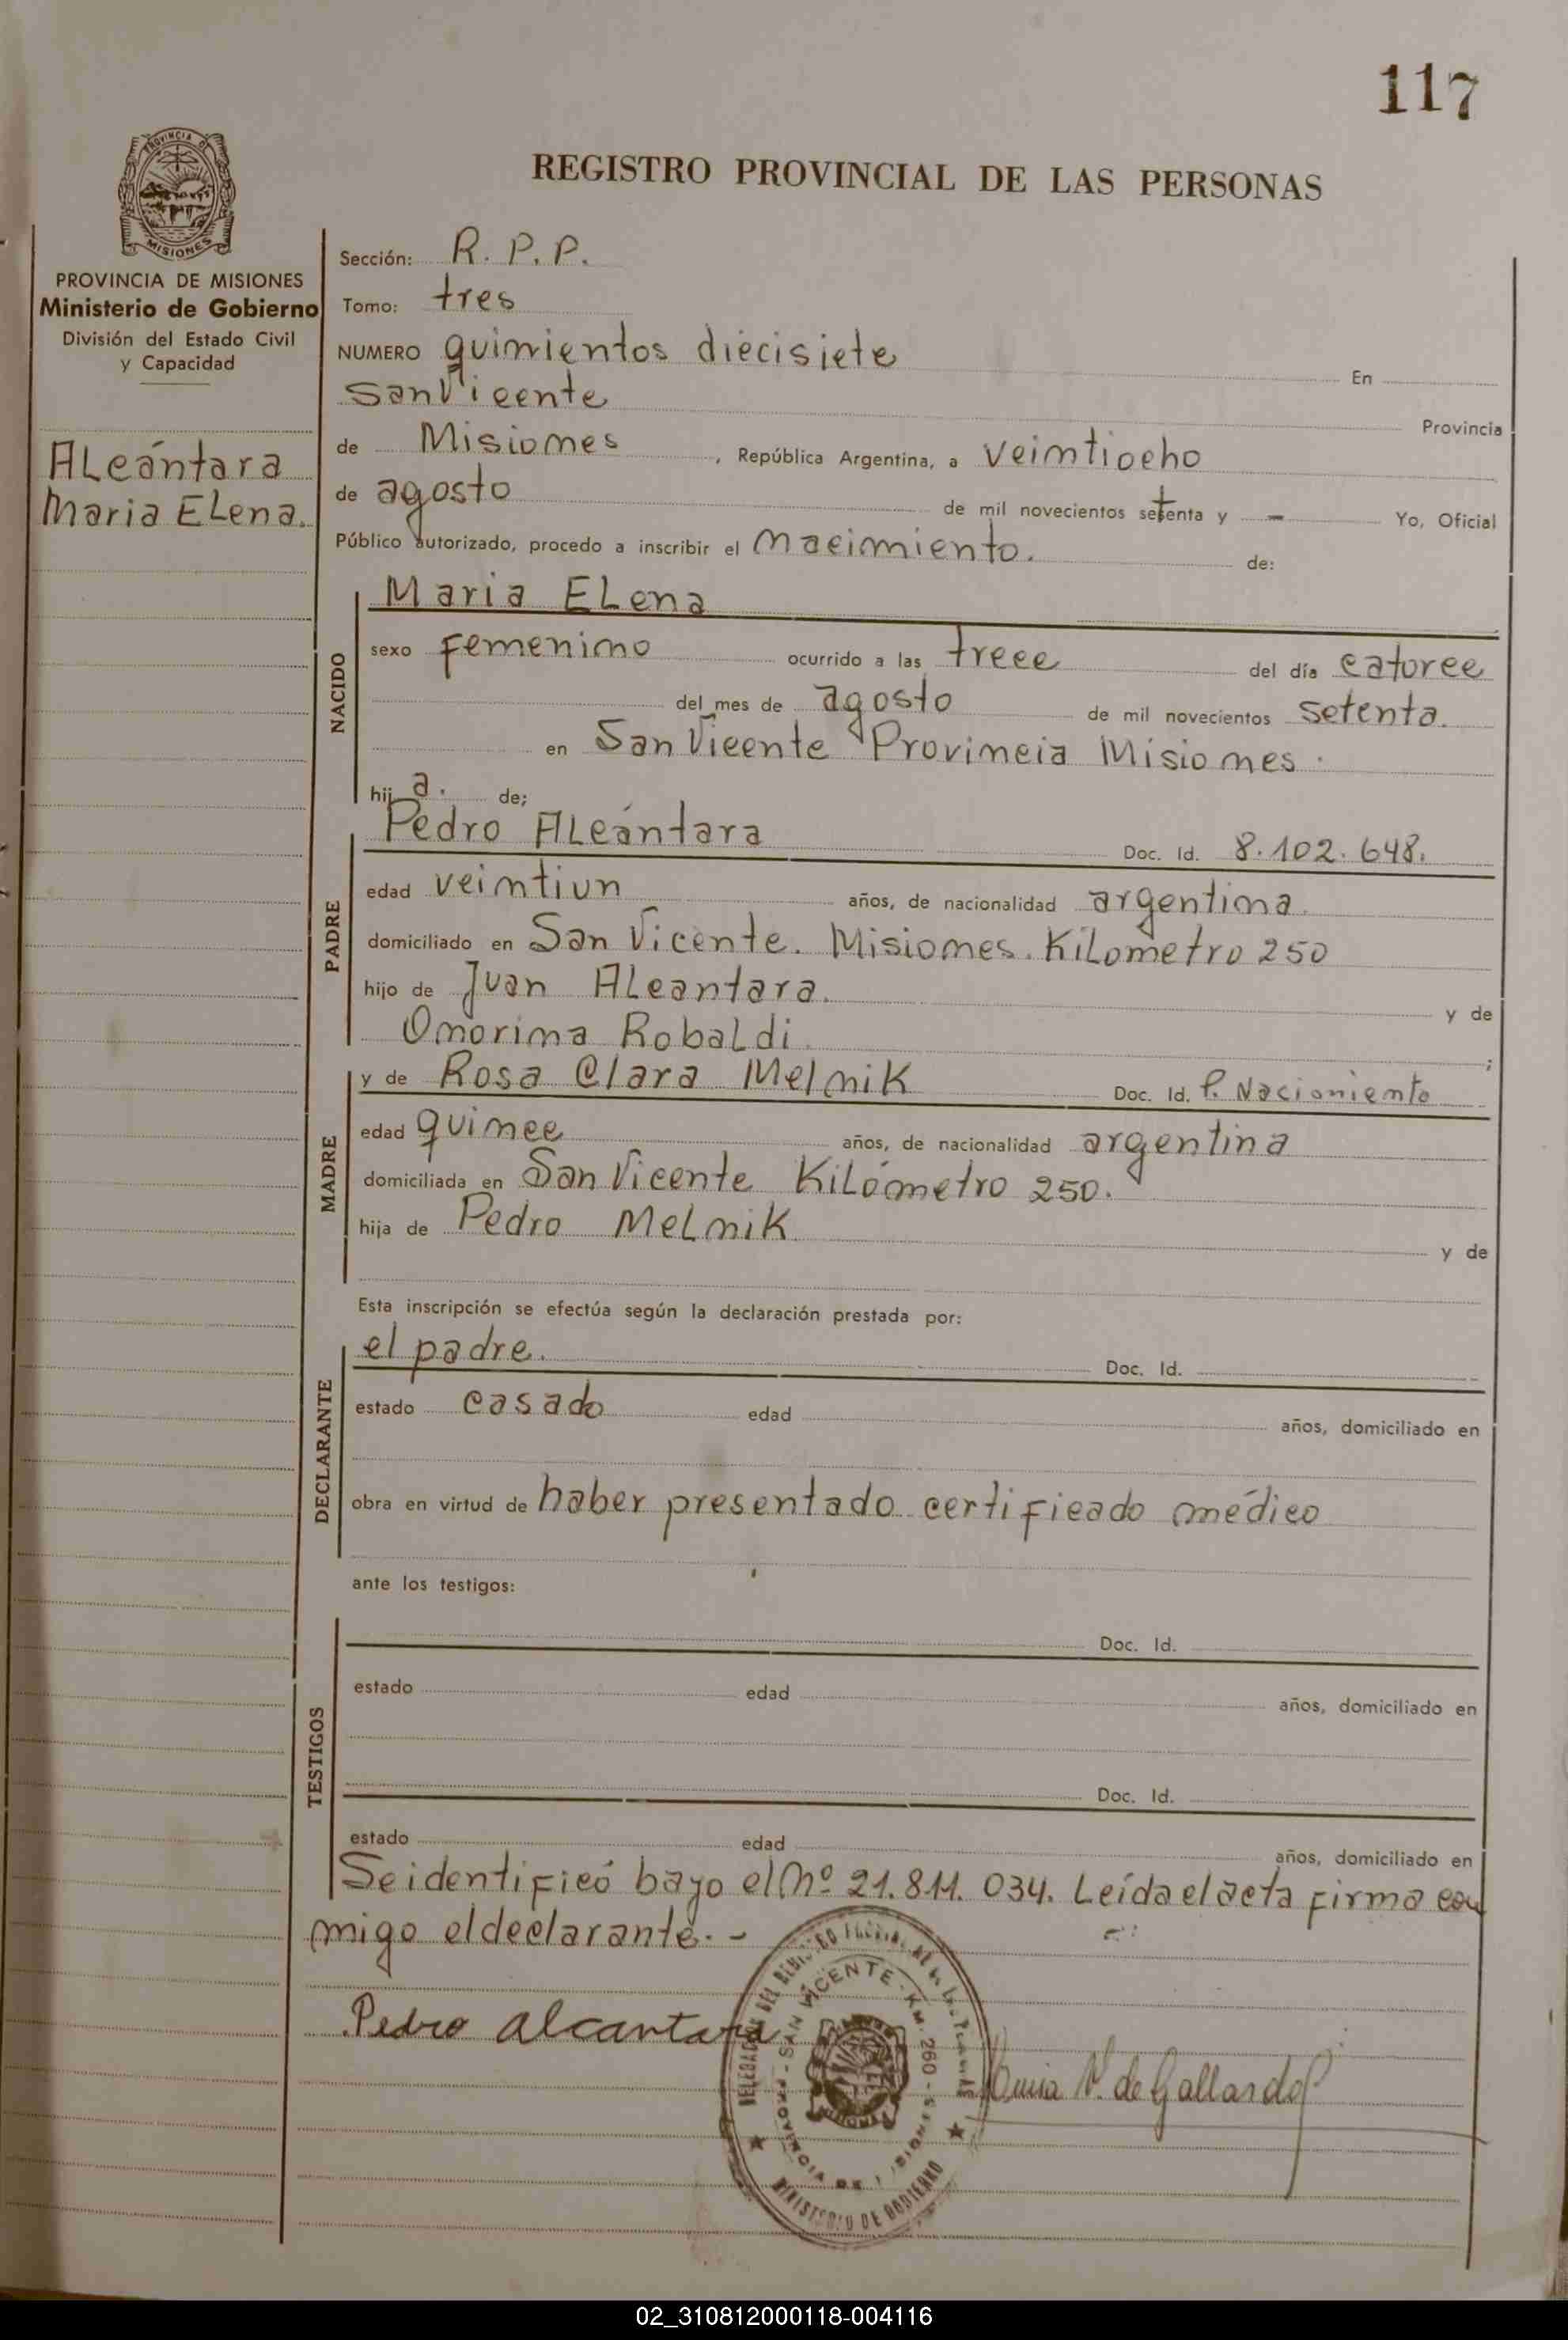 117
REGISTRO PROVINCIAL DE LAS PERSONAS
PROVINCIA DE
MISIONES
PROVINCIA DE MISIONES
Ministerio de Gobierno
División del Estado Civil
y Capacidad
Alcántara
Maria Elena.
Sección: R. P. P.
Tomo: tres
NUMERO quinientos diecisiete En
San Vicente Provincia
de Misiones, República Argentina, a veintiocho
de agosto de mil novecientos setenta y - Yo, Oficial
Público autorizado, procedo a inscribir el nacimiento. de:
NACIDO
Maria Elena
sexo femenino ocurrido a las trece del día catorce
del mes de agosto de mil novecientos setenta.
en San Vicente Provincia Misiones.
hij a. de;
PADRE
Pedro Alcántara Doc. Id. 8.102.648.
edad veintiun años, de nacionalidad argentina.
domiciliado en San Vicente. Misiones. Kilometro 250
hijo de Juan Alcantara. y de
Onorina Robaldi ;
MADRE
y de Rosa Clara Melnik Doc. Id. P. Nacimiento
edad quince años, de nacionalidad argentina
domiciliada en San Vicente Kilómetro 250.
hija de Pedro Melnik y de
Esta inscripción se efectúa según la declaración prestada por:
DECLARANTE
el padre. Doc. Id.
estado casado edad años, domiciliado en
obra en virtud de haber presentado certificado médico
ante los testigos:
TESTIGOS
Doc. Id.
estado edad años, domiciliado en
Doc. Id.
estado edad años, domiciliado en
Se identificó bajo el Nº 21.811.034. Leída el acta firma con
migo el declarante. -
Pedro Alcantara
SAN VICENTE - KM. 260 - MISIONES
PROVINCIA DE
MINISTERIO DE GOBIERNO
V. de Gallardo
02_310812000118-004116